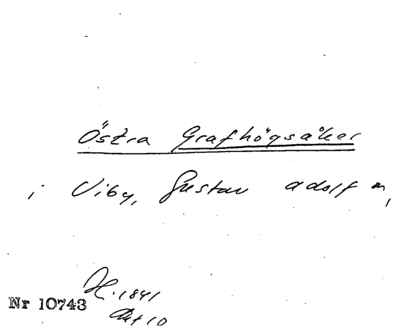 Östra Grafhögsåker
i Viby, Gustav Adolf n,
H. 1841
Akt 10
Nr 10743